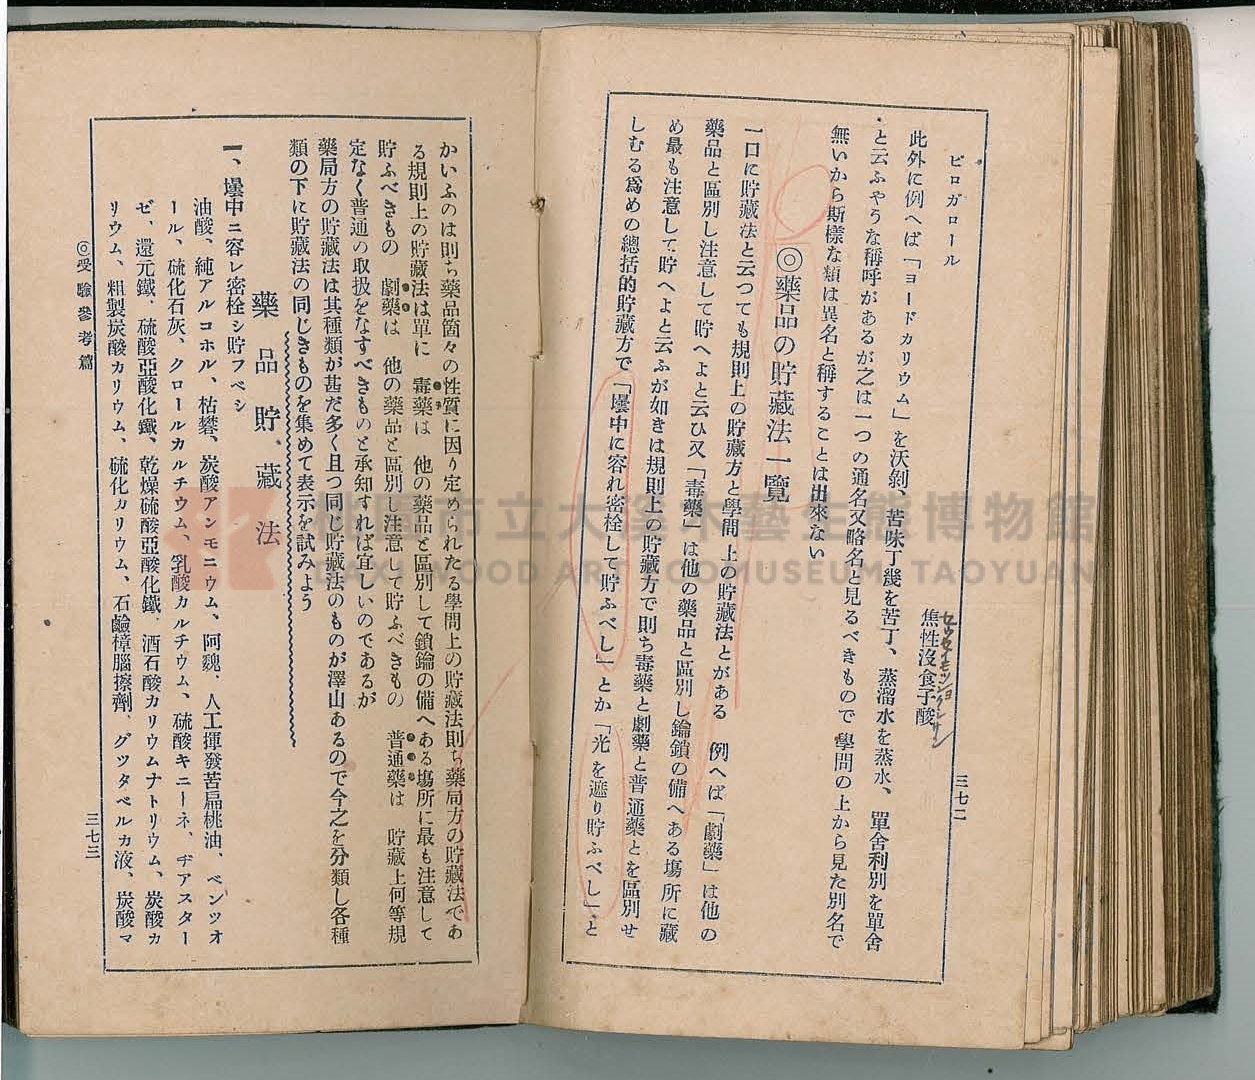 三七二
ピロガロール　焦性沒食子酸
セウセイモツシヨクシサン
此外に例へば「ヨードカリウム」を沃剝、苦味丁幾を苦丁、蒸溜水を蒸水、單舍利別を單舍
と云ふやうな稱呼があるが之は一つの通名又略名と見るべきもので學問の上から見た別名で
無いから斯樣な類は異名と稱することは出來ない
◎藥品の貯藏法一覽
一口に貯藏法と云つても規則上の貯藏方と學問上の貯藏法とがある　例へば「劇藥」は他の
藥品と區別し注意して貯へよと云ひ又「毒藥」は他の藥品と區別し鑰鎖の備へある塲所に藏
め最も注意して貯へよと云ふが如きは規則上の貯藏方で則ち毒藥と劇藥と普通藥とを區別せ
しむる爲めの總括的貯藏方で「壜中に容れ密栓して貯ふべし」とか「光を遮り貯ふべし」と
かいふのは則ち藥品箇々の性質に因り定められたる學問上の貯藏法則ち藥局方の貯藏法であ
る規則上の貯藏法は單に　毒藥は　他の藥品と區別して鎖鑰の備へある塲所に最も注意して
貯ふべきもの　劇藥は　他の藥品と區別し注意して貯ふべきもの　普通藥は　貯藏上何等規
定なく普通の取扱をなすべきものと承知すれば宜しいのであるが
藥局方の貯藏法は其種類が甚だ多く且つ同じ貯藏法のものが澤山あるので今之を分類し各種
類の下に貯藏法の同じきものを集めて表示を試みよう
藥品貯藏法
一、壜中ニ容レ密栓シ貯フベシ
油酸、純アルコホル、枯礬、炭酸アンモニウム、阿魏、人工揮發苦扁桃油、ベンツオ
ール、硫化石灰、クロールカルチウム、乳酸カルチウム、硫酸キニーネ、ヂアスター
ゼ、還元鐵、硫酸亞酸化鐵、乾燥硫酸亞酸化鐵、酒石酸カリウムナトリウム、炭酸カ
リウム、粗製炭酸カリウム、硫化カリウム、石鹼樟腦擦劑、グツタペルカ液、炭酸マ
◎受驗參考篇
三七三
市立大溪木藝生態博物館
WOOD ART ECOMUSEUM, TAOYUAN